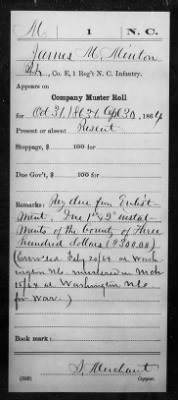 M | 1 | N.C.
James M. Minton
Pvt., Co. E, 1 Reg't N. C. Infantry.
Appears on
Company Muster Roll
for Oct 31, 1863 to Apl 30, 1864
Present or absent Present
Stoppage, $ 100 for
Due Gov't, $ 100 for
Remarks: Pay due from Enlist-
ment. Due 1st & 2d instal-
ments of the bounty of Three
hundred dollars ($300.00)
(Enrolled Feby 20/64 at Wash-
ington NC mustered in Mch
15/64 at Washington NC
for War)
Book mark:
S. Merchant
(358) Copyist.